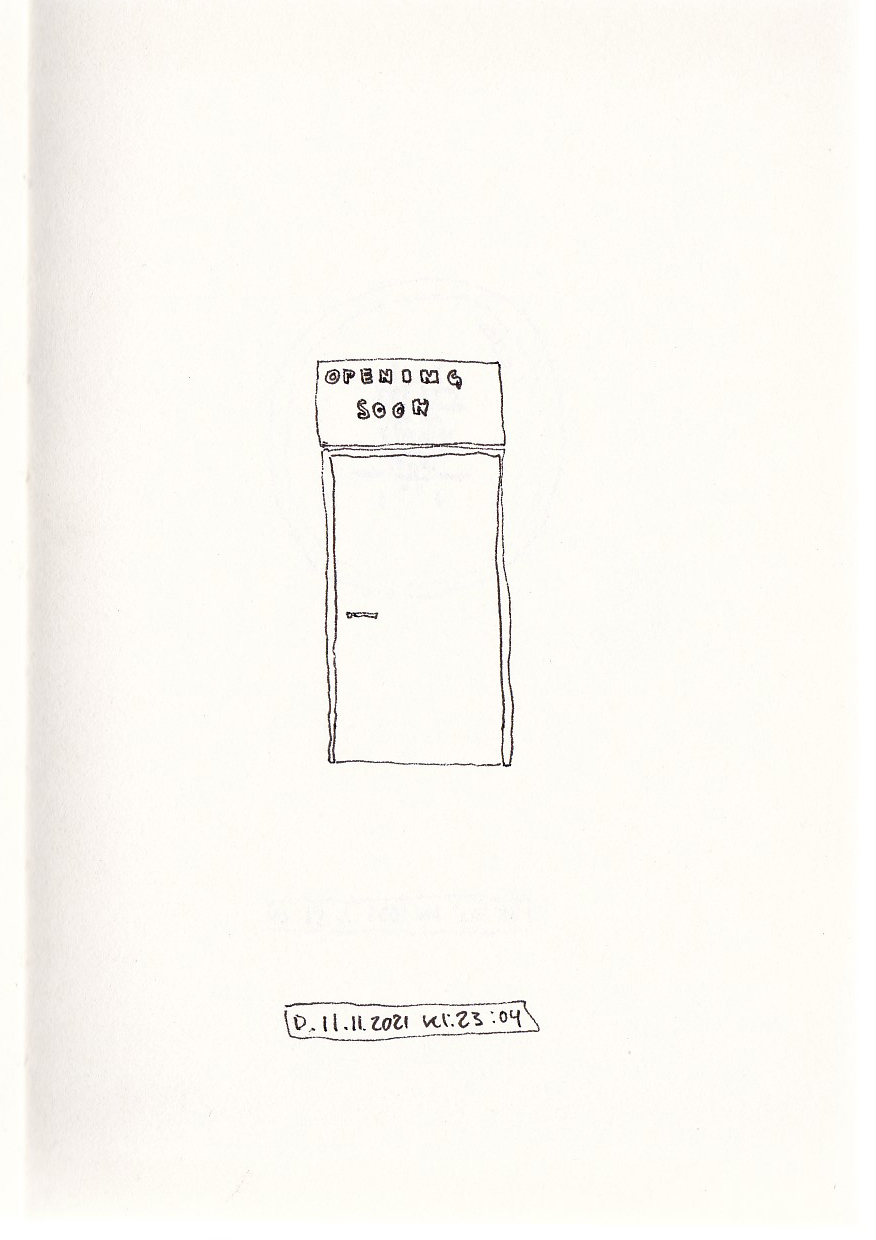 OPENING
SOON
D. 11.11.2021 kl. 23:04